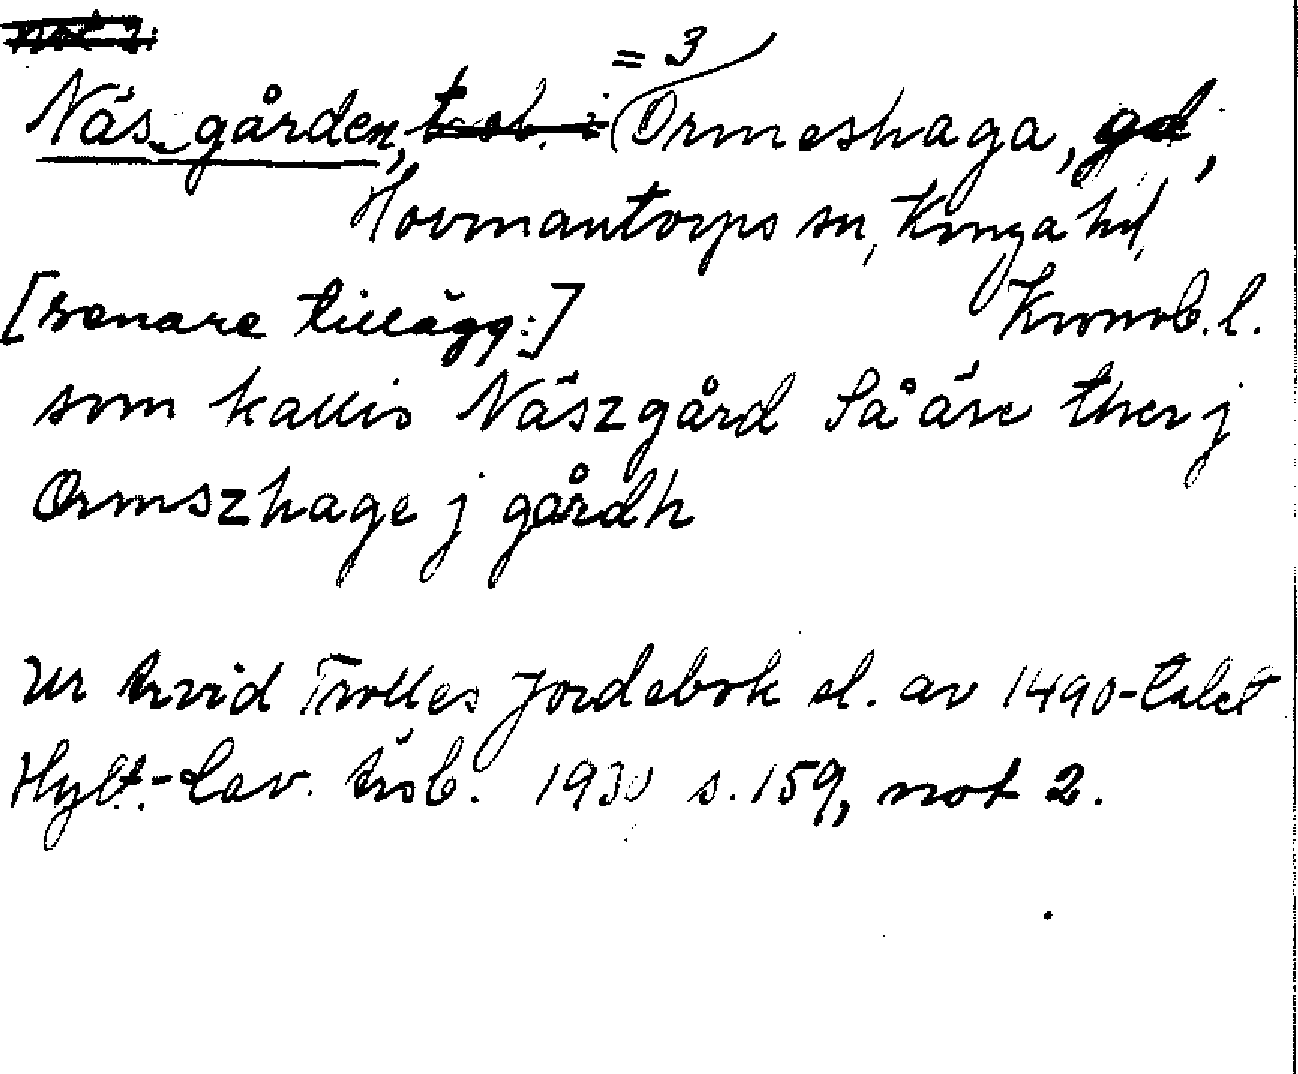 = 3
Näs_gården, (Ormeshaga, gd,
Hovmantorps sn, Konga hd,
[senare tillägg:] Kronob. l.
som kallis Näszgård Så äre ther j
Ormszhage j gårdh
Ur Arvid Trolles Jordebok el. av 1490-talet
Hylt.-Cav. håb. 1930 s. 159, not 2.